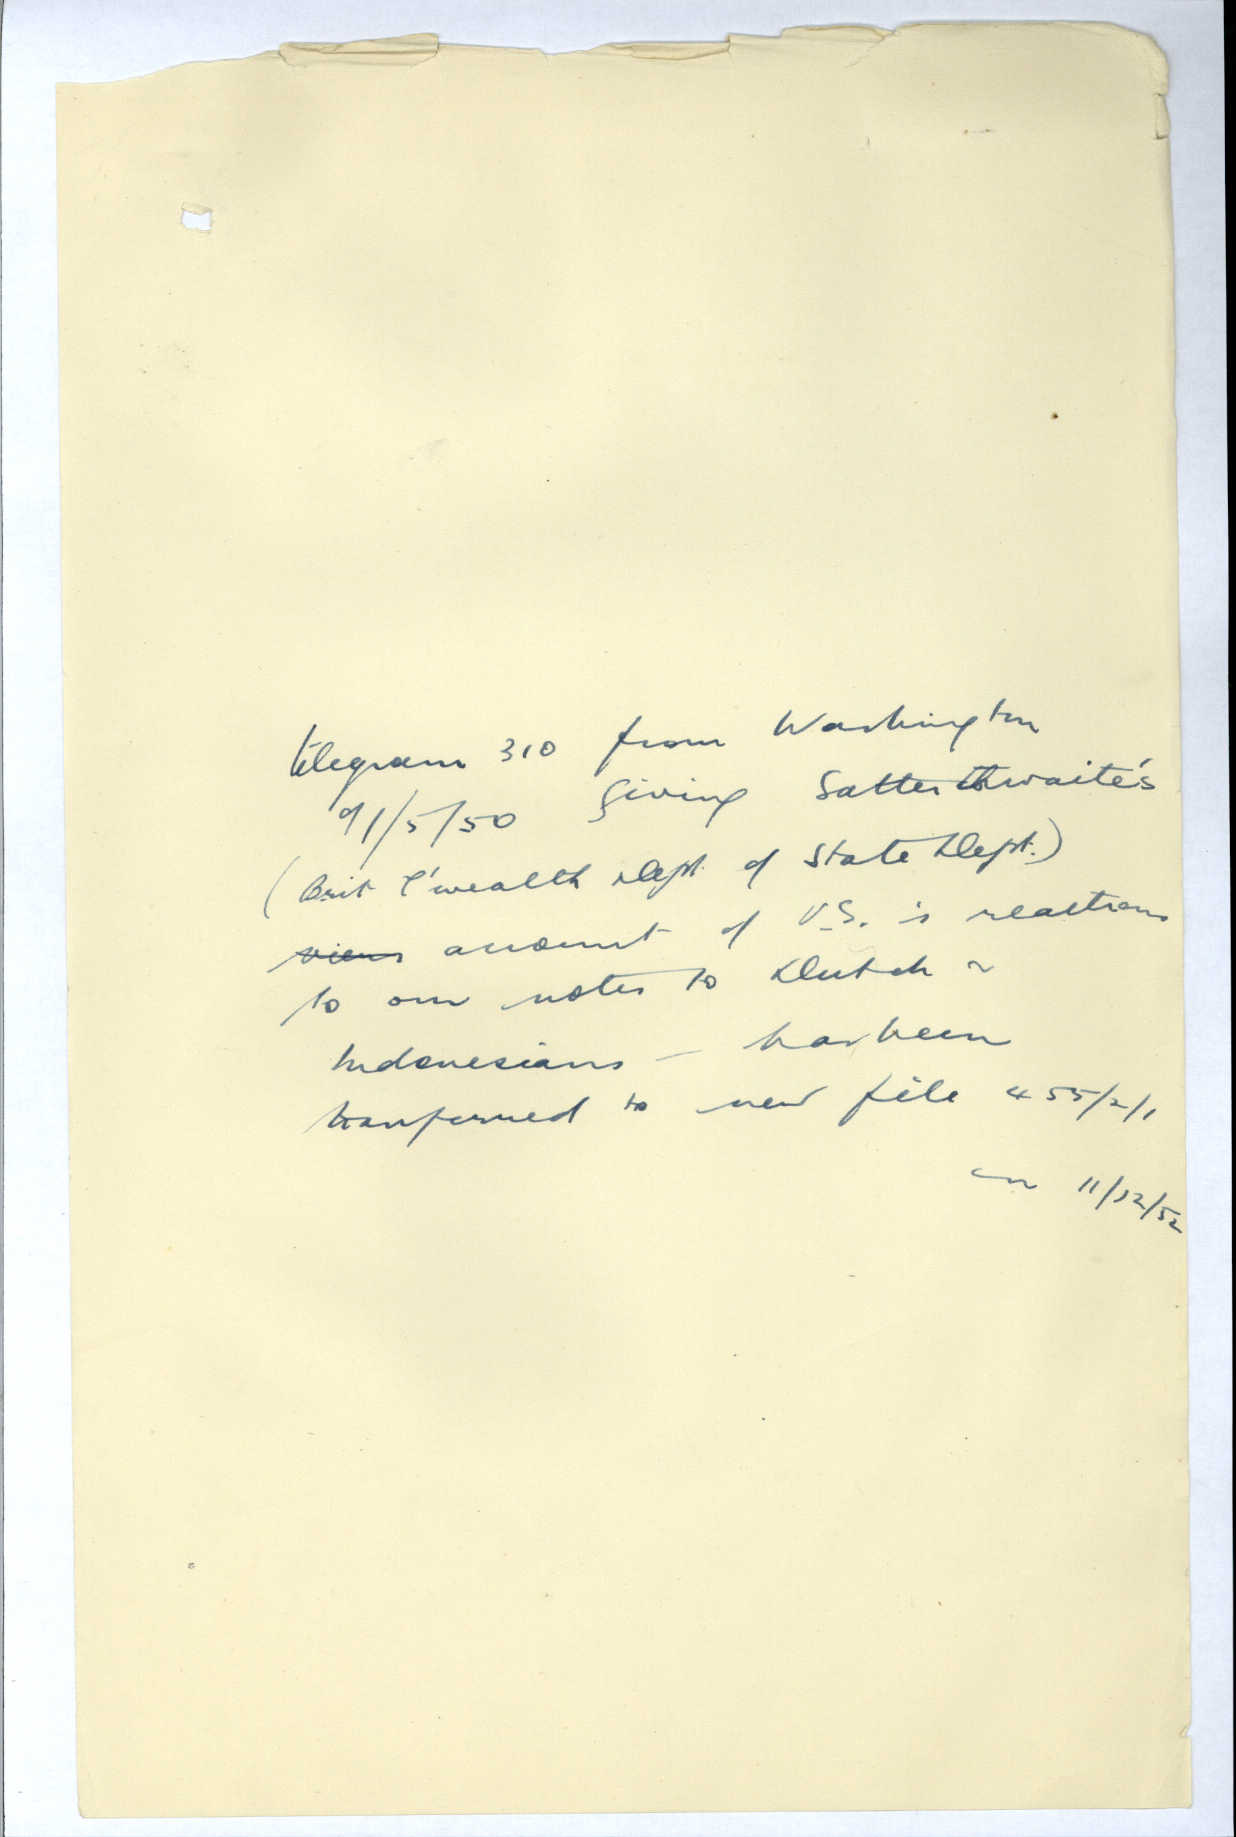 telegram 310 from Washington
of 1/5/50 giving Satterthwaite's
(Brit C'wealth Dept. of State Dept.)
views account of U.S.'s reactions
to our notes to Dutch &
Indonesians — has been
transferred to new file 455/2/1
on 11/12/52